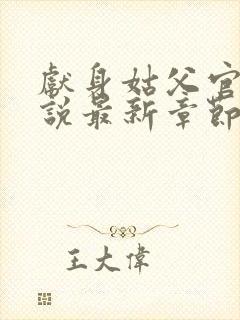 獻身姑父官
說最新章節
王大偉